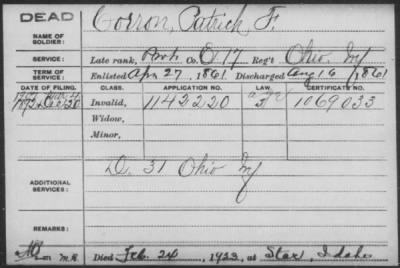 DEAD
Corron, Patrick F.
NAME OF SOLDIER:
SERVICE: Late rank, Pvt. Co. D 17 Reg't Ohio Inf
TERM OF SERVICE: Enlisted Apr 27, 1861 Discharged Aug 16, 1861
DATE OF FILING. CLASS. APPLICATION NO. LAW. CERTIFICATE NO.
1892 Dec 20 Invalid, 1142220 1069033
Widow,
Minor,
D. 31 Ohio Inf
ADDITIONAL SERVICES:
REMARKS:
M.R. Died Feb. 24, 1923, at Star, Idaho